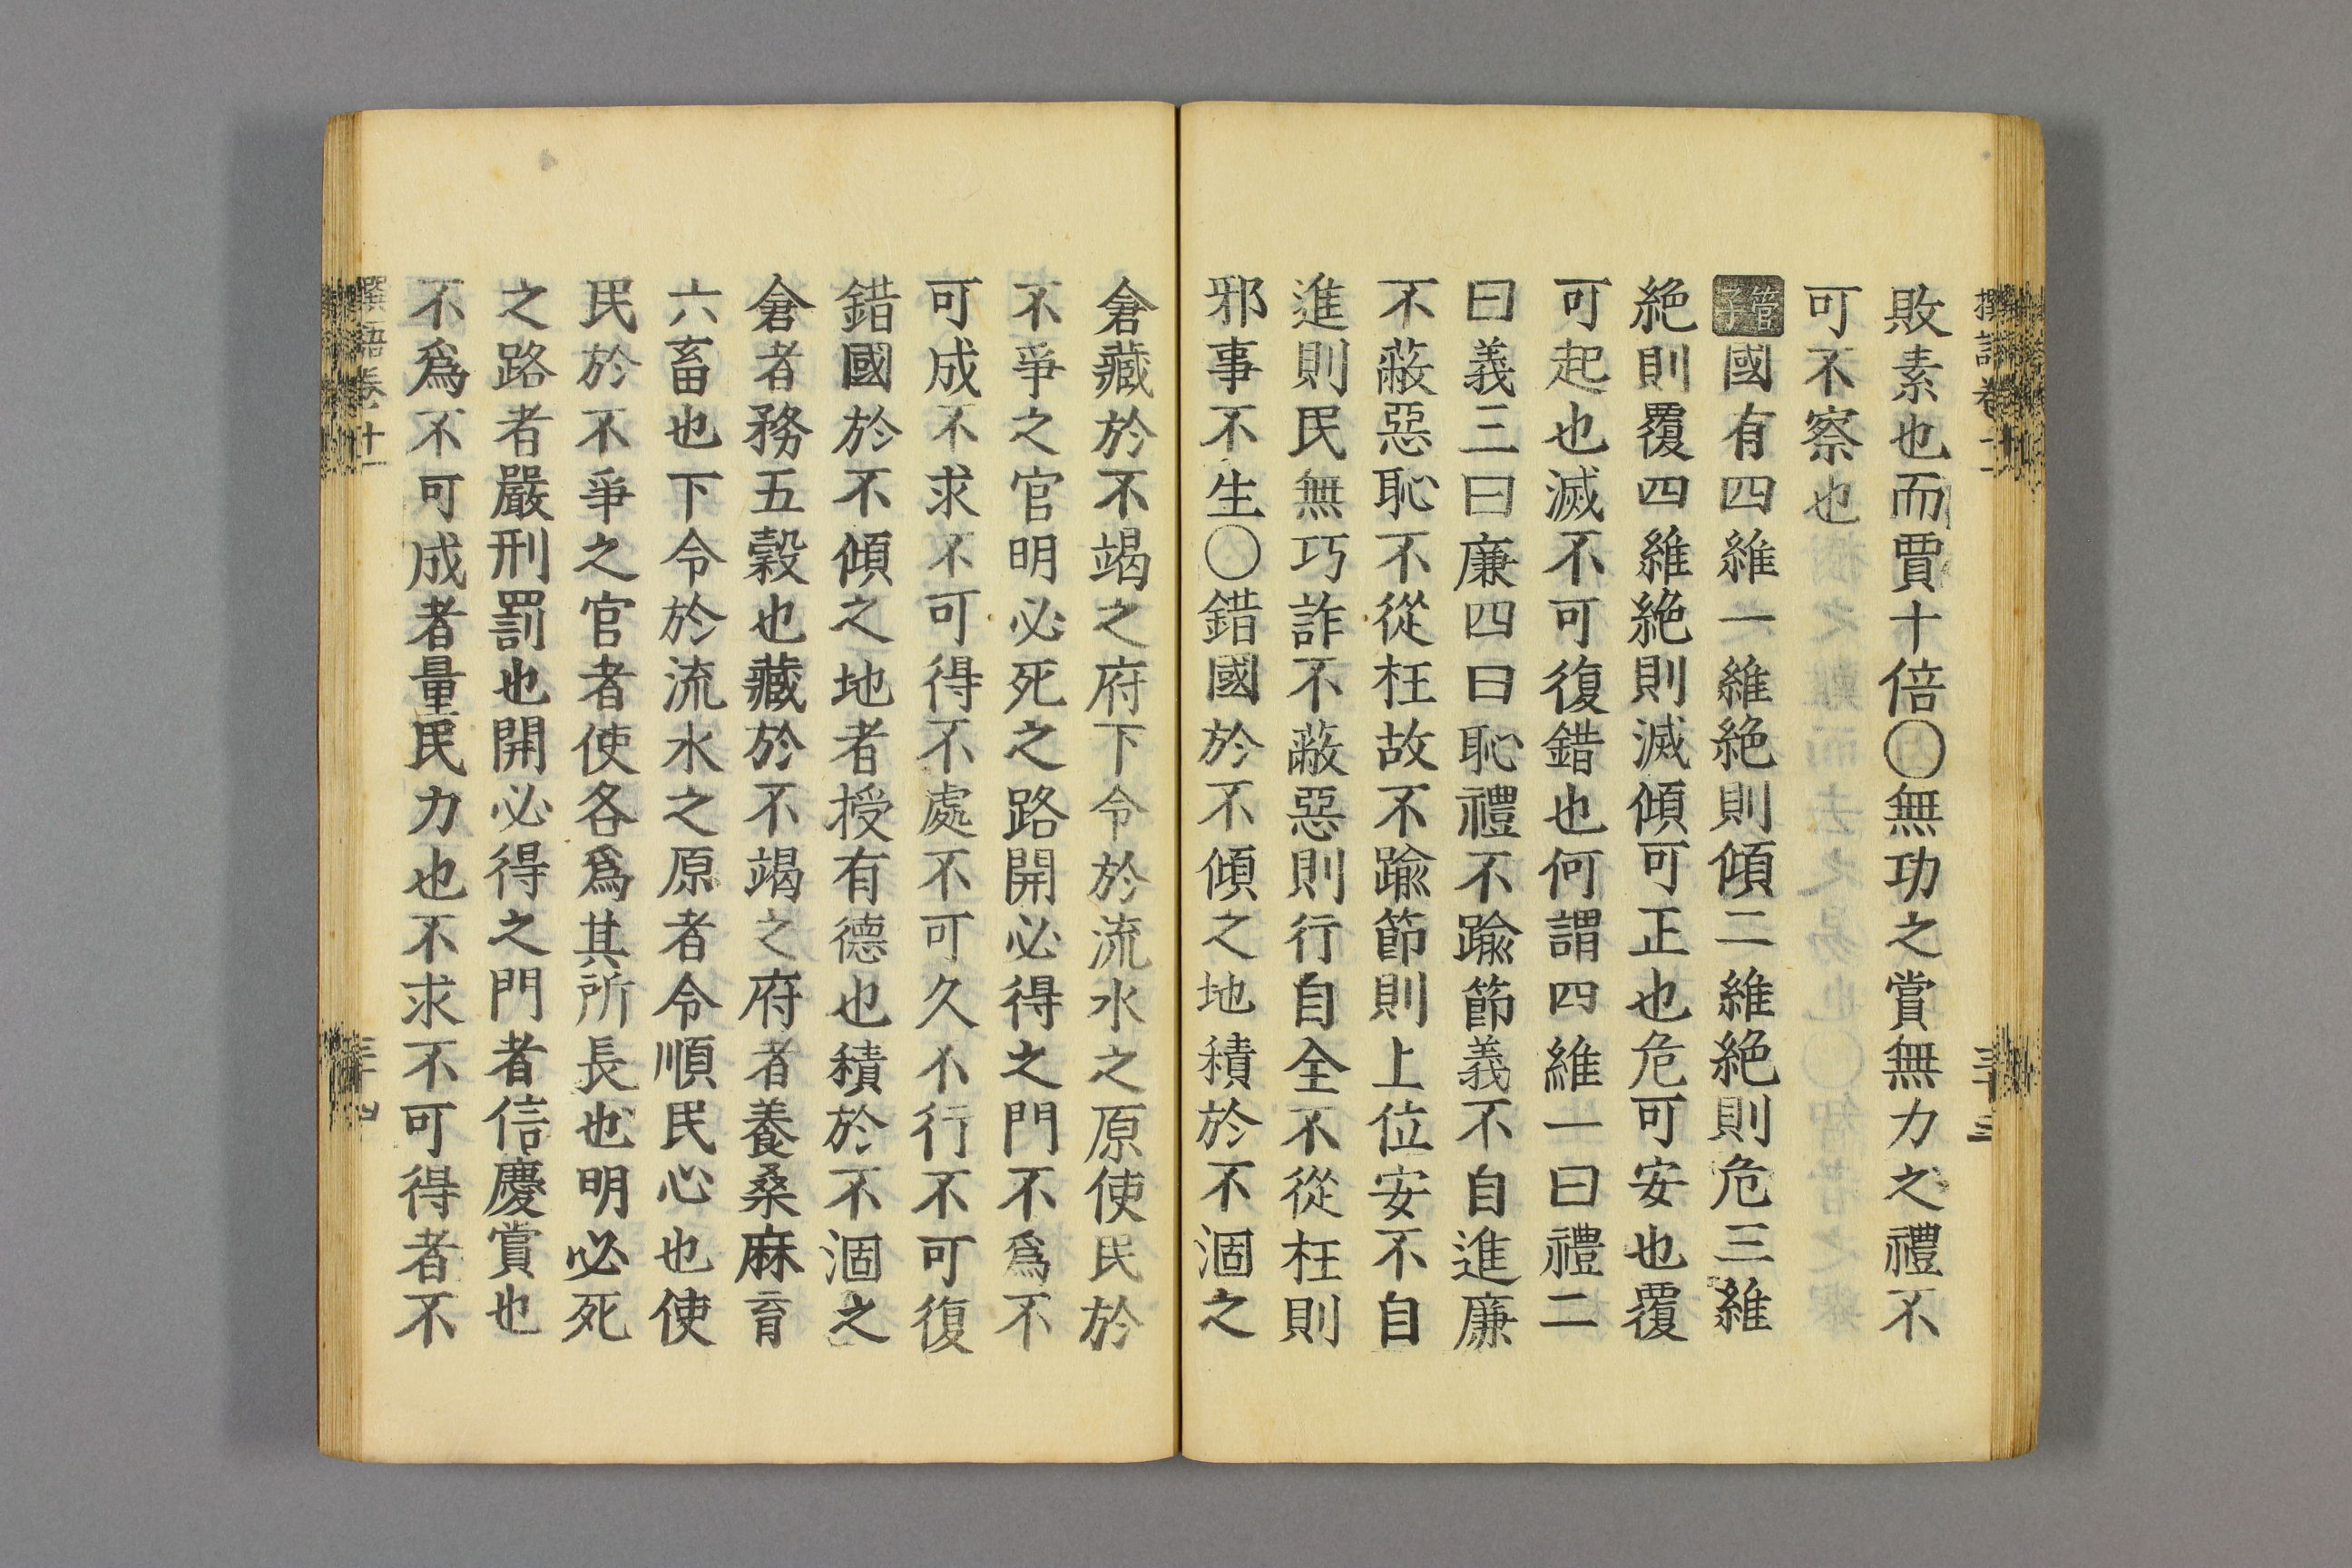 撰語卷十一
三十三
敗素也而賈十倍〇無功之賞無力之禮不
可不察也
管子國有四維一維絶則傾二維絶則危三維
絶則覆四維絶則滅傾可正也危可安也覆
可起也滅不可復錯也何謂四維一曰禮二
曰義三曰廉四曰恥禮不踰節義不自進廉
不蔽惡恥不從枉故不踰節則上位安不自
進則民無巧詐不蔽惡則行自全不從枉則
邪事不生〇錯國於不傾之地積於不涸之
倉藏於不竭之府下令於流水之原使民於
不爭之官明必死之路開必得之門不爲不
可成不求不可得不處不可久不行不可復
錯國於不傾之地者授有德也積於不涸之
倉者務五穀也藏於不竭之府者養桑麻育
六畜也下令於流水之原者令順民心也使
民於不爭之官者使各爲其所長也明必死
之路者嚴刑罰也開必得之門者信慶賞也
不爲不可成者量民力也不求不可得者不
撰語卷十一
三十四